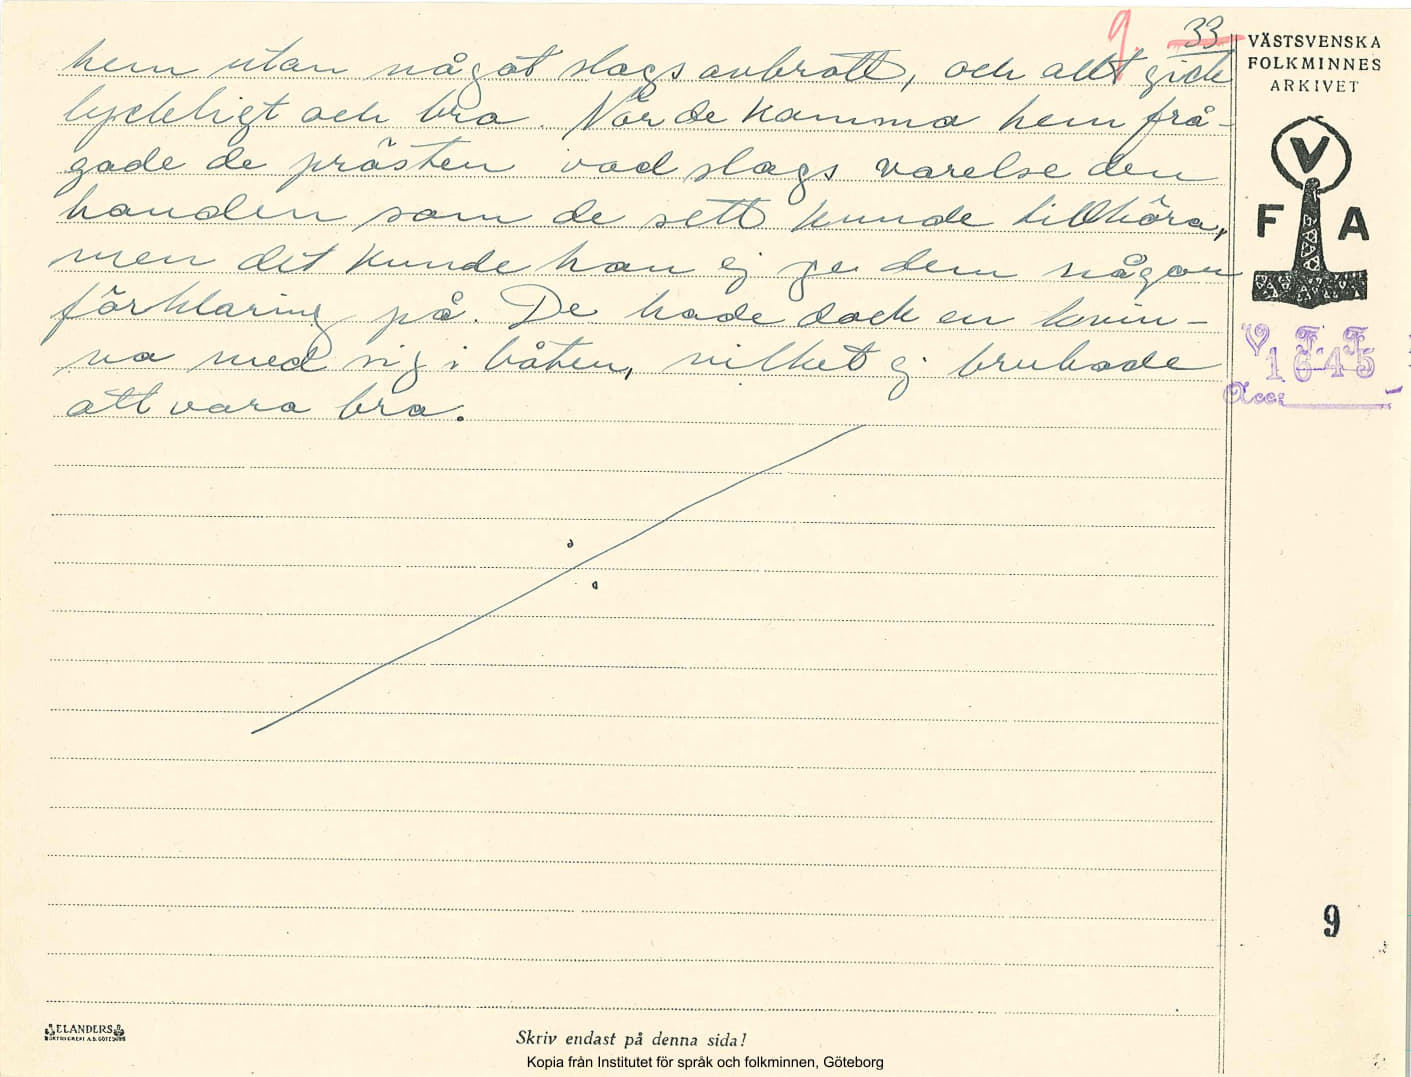 9. 33
hem utan något slags avbrott, och allt gick
lyckligt och bra. När de kommo hem frå-
gade de prästen vad slags varelse den
handen som de sett kunde tillhöra,
men det kunde han ej ge dem någon
förklaring på. De hade dock en kvin-
na med sig i båten, vilket ej brukade
att vara bra.
VÄSTSVENSKA
FOLKMINNES
ARKIVET
V
F A
V. F. F.
1645
Acc:
9
ELANDERS
BOKTRYCKERI A.B. GÖTEBORG
Skriv endast på denna sida!
Kopia från Institutet för språk och folkminnen, Göteborg